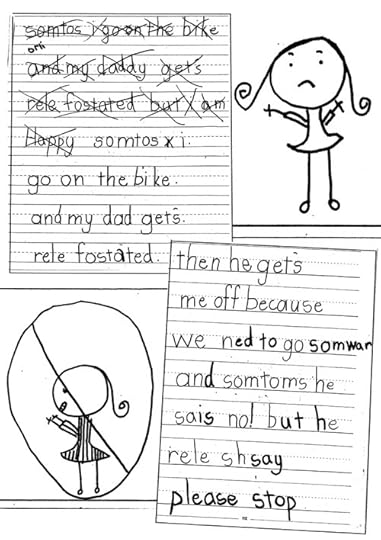 somtos i go on the bike
on
and my daddy gets
rele fostated but I am
Happy somtos x i
go on the bike.
and my dad gets.
rele fostated.
then he gets
me off because
we ned to go somwar
and somtoms he
sais no! but he
rele sh say
please stop